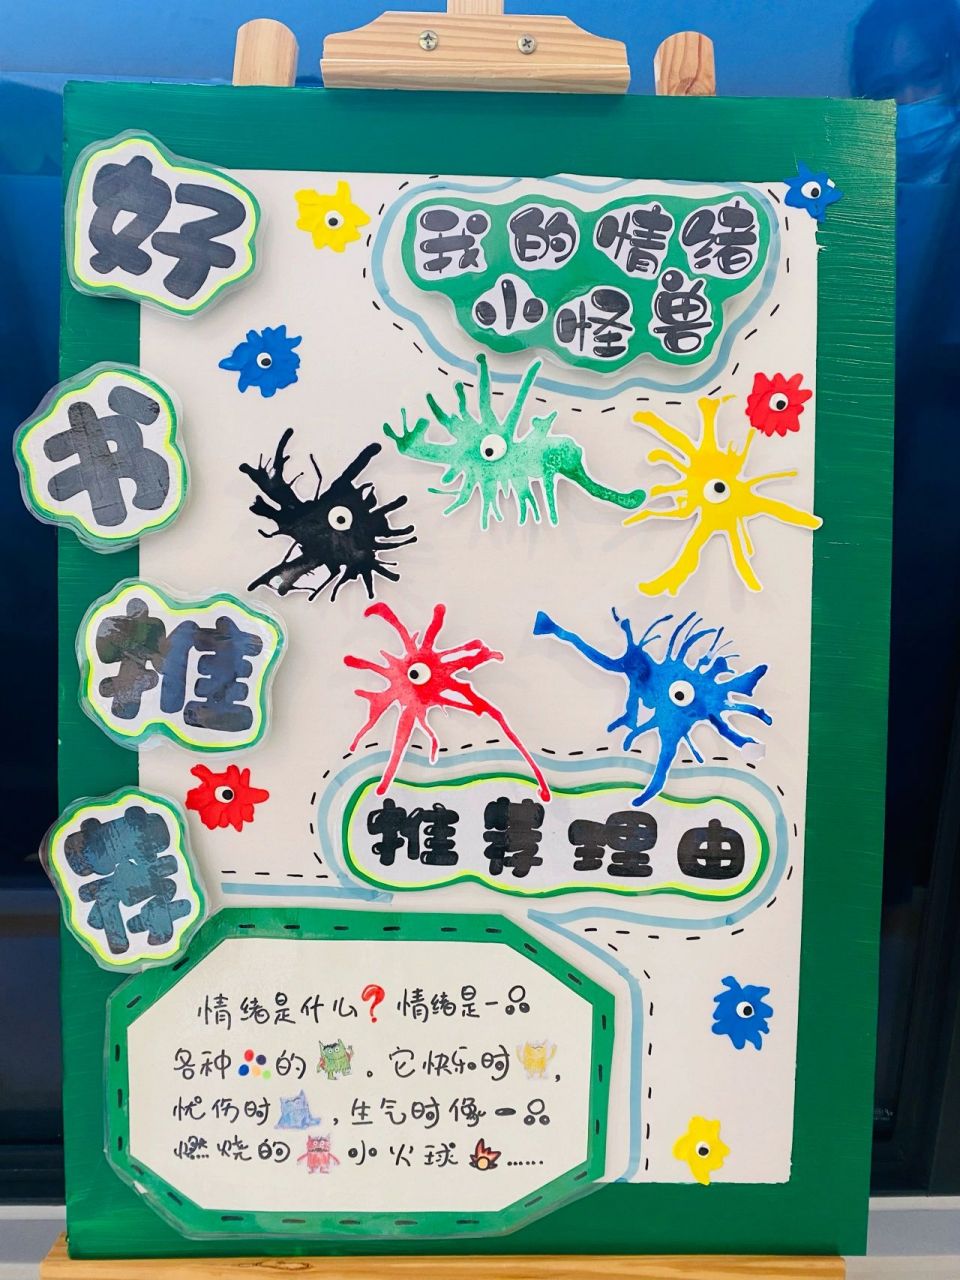 好书推荐
我的情绪
小怪兽
推荐理由
情绪是什么?情绪是一品
各种的。它快乐时,
忧伤时,生气时像一品
燃烧的小火球……